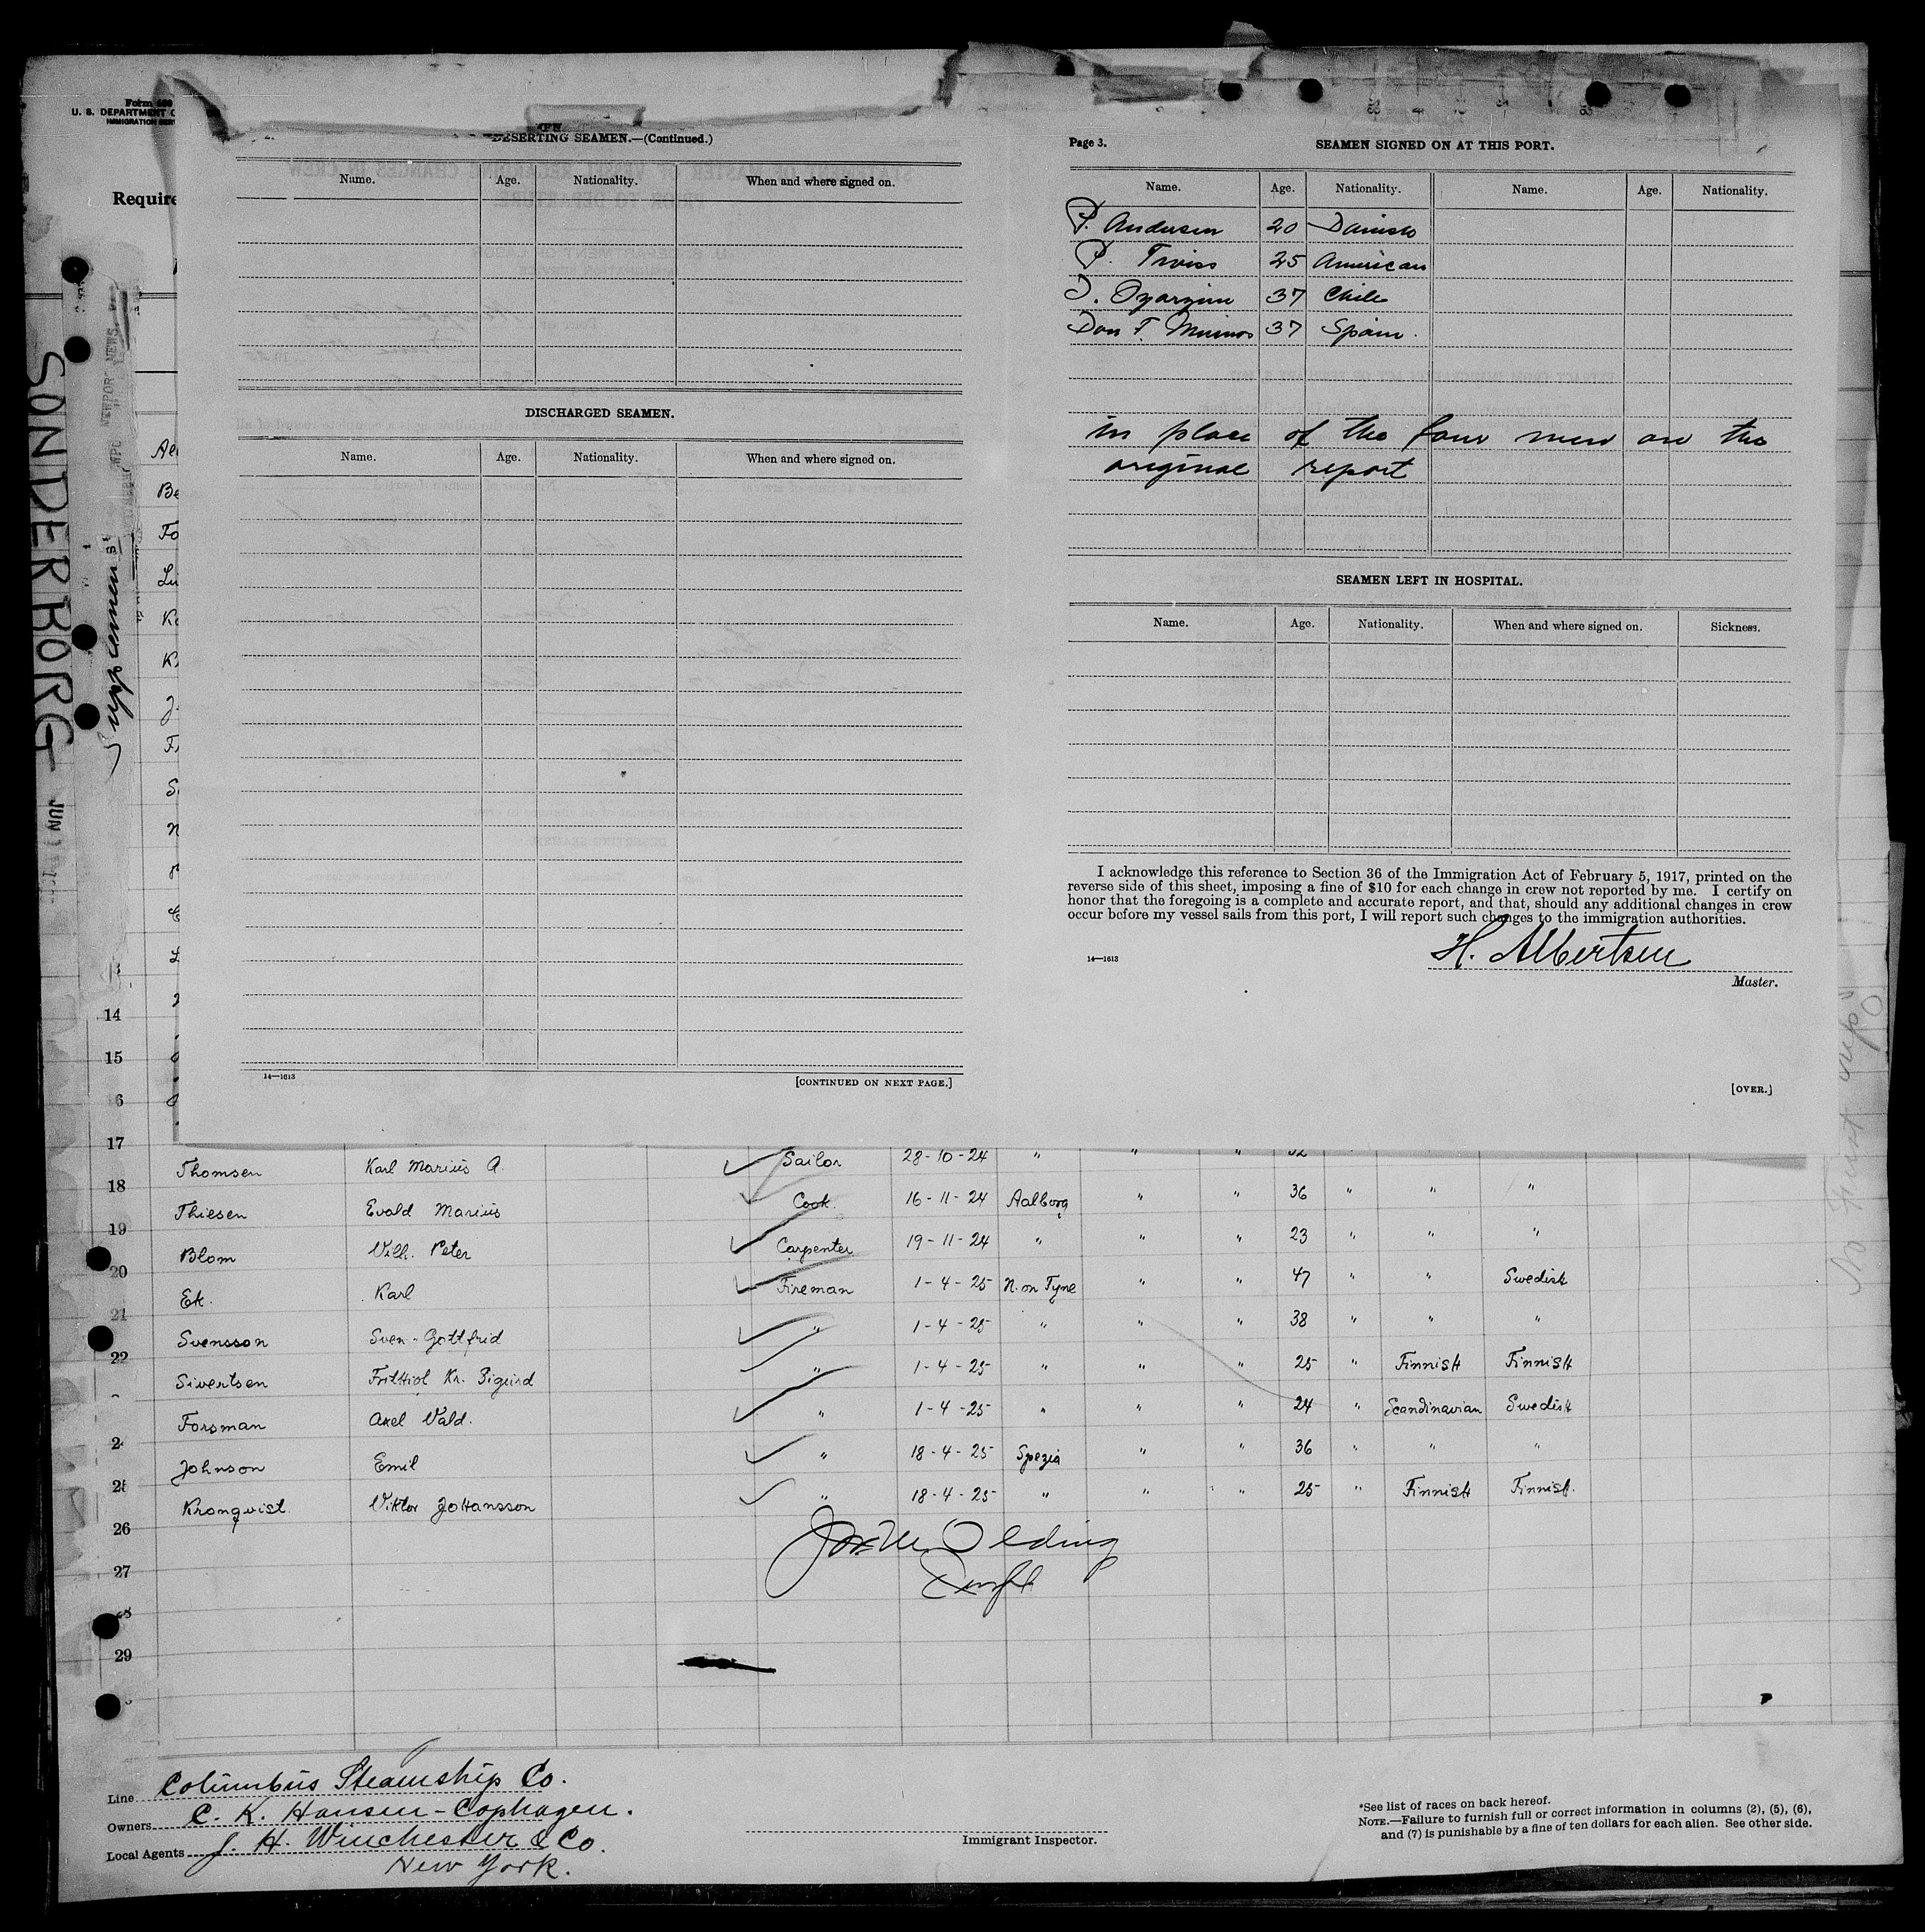 Form 689
U. S. DEPARTMENT O
IMMIGRATION SERV
Require
SONDERBORG
JUN
NEWPORT NEWS,
Supplement
DESERTING SEAMEN.—(Continued.)
Name. Age. Nationality. When and where signed on.
DISCHARGED SEAMEN.
Name. Age. Nationality. When and where signed on.
14—1613
[CONTINUED ON NEXT PAGE.]
Page 3.
SEAMEN SIGNED ON AT THIS PORT.
Name. Age. Nationality. Name. Age. Nationality.
P. Andersen 20 Danish
P. Twiss 25 American
37 Chile
37 Spain.
in place of the four men on the
original report
SEAMEN LEFT IN HOSPITAL.
Name. Age. Nationality. When and where signed on. Sickness.
I acknowledge this reference to Section 36 of the Immigration Act of February 5, 1917, printed on the
reverse side of this sheet, imposing a fine of $10 for each change in crew not reported by me. I certify on
honor that the foregoing is a complete and accurate report, and that, should any additional changes in crew
occur before my vessel sails from this port, I will report such changes to the immigration authorities.
H. Albertsen
14—1613
Master.
[OVER.]
Be
Fo
14
15
6
17 Thomsen Karl Marius A. Sailor 28-10-24 " " 32
18 Thiesen Evald Marius Cook 16-11-24 Aalborg " " 36 " " "
19 Blom Vilh. Peter Carpenter 19-11-24 " " " 23 " " "
20 Ek. Karl Fireman 1-4-25 N. on Tyne " " 47 " " Swedish
21 Svensson Sven-Gottfrid " 1-4-25 " " " 38 " " "
22 Sivertsen Frithiol Kr. Sigurd " 1-4-25 " " " 25 " Finnish Finnish
Forsman Axel Vald. " 1-4-25 " " " 24 " Scandinavian Swedish
24 Johnson Emil " 18-4-25 Spezia " " 36 " " "
25 Kronqvist Viktor Johansson " 18-4-25 " " " 25 " Finnish Finnish.
26
27
28
29
Jos. M. Olding
Line Columbus Steamship Co.
Owners C. K. Hansen - Cophagen.
Local Agents J. H. Winchester & Co.
New York.
Immigrant Inspector.
*See list of races on back hereof.
NOTE.—Failure to furnish full or correct information in columns (2), (5), (6),
and (7) is punishable by a fine of ten dollars for each alien. See other side.